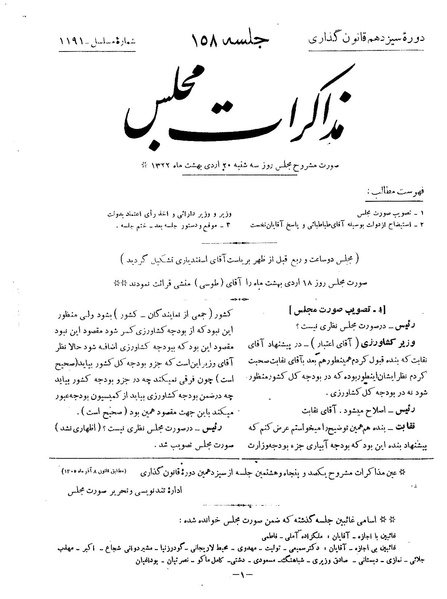 دورهٔ سیزدهم قانون گذاری
جلسه ۱۵۸
شمارهٔ مسلسل - ۱۱۹۱
مذاکرات مجلس
صورت مشروح مجلس روز سه شنبه ۲۰ اردی بهشت ماه ۱۳۲۲
فهرست مطالب:
۱ - تصویب صورت مجلس
۲ - استیضاح از دولت بوسیله آقای طباطبائی و پاسخ آقایان نخست
وزیر و وزیر دارائی و اخذ رأی اعتماد بدولت
۳ - موقع و دستور جلسه بعد - ختم جلسه .
( مجلس دو ساعت و ربع قبل از ظهر بریاست آقای اسفندیاری تشکیل گردید )
صورت مجلس روز ۱۸ اردی بهشت ماه را آقای (طوسی) منشی قرائت نمودند
[۱- تصویب صورت مجلس]
رئیس - در صورت مجلس نظری نیست ؟
وزیر کشاورزی (آقای اعتبار) - در پیشنهاد آقای
نقابت که بنده قبول کردم همینطور هم بعد با آقای نقابت صحبت
کردم نظر ایشان اینطور بوده که در بودجه کل کشور منظور
شود نه در بودجه کل کشاورزی.
رئیس - اصلاح میشود . آقای نقابت
نقابت - بنده هم همین توضیح را میخواستم عرض کنم که
پیشنهاد بنده این بود که بودجه آبیاری جزء بودجه وزارت
کشور (جمعی از نمایندگان - کشور) بشود ولی منظور
این نبود که از بودجه کشاورزی کسر شود مقصود این نبود
مقصود این بود که ببودجه کشاورزی اضافه شود حالا نظر
آقای وزیر این است که جزو بودجه کل کشور بیاید (صحیح
است) چون فرقی نمیکند چه در جزو بودجه کل کشور بیاید
چه در ضمن بودجه کشاورزی بیاید از کمیسیون بودجه عبور
میکند باین جهت مقصود همین بود (صحیح است).
رئیس - در صورت مجلس نظری نیست ؟ (اظهاری نشد)
صورت مجلس تصویب شد .
عین مذاکرات مشروح یکصد و پنجاه و هشتمین جلسه از سیزدهمین دوره قانون گذاری (مطابق قانون ۸ آذر ماه ۱۳۰۵)
اداره تندنویسی و تحریر صورت مجلس
اسامی غائبین جلسه گذشته که ضمن صورت مجلس خوانده شده :
غائبین با اجازه - آقایان : ملکزاده آملی - فاطمی
غائبین بی اجازه - آقایان : دکتر سمیعی - تولیت - مهدوی - محیط لاریجانی - گودرزنیا - مشیر دوانی شجاع - اکبر - مهذب
جلائی - نمازی - دبستانی - صادق وزیری - شباهنگ - مسعودی - دشتی - کامل ماکو - نصرتیان - بوداغیان
-۱-